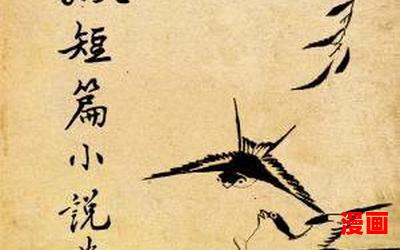 短篇小說
漫画